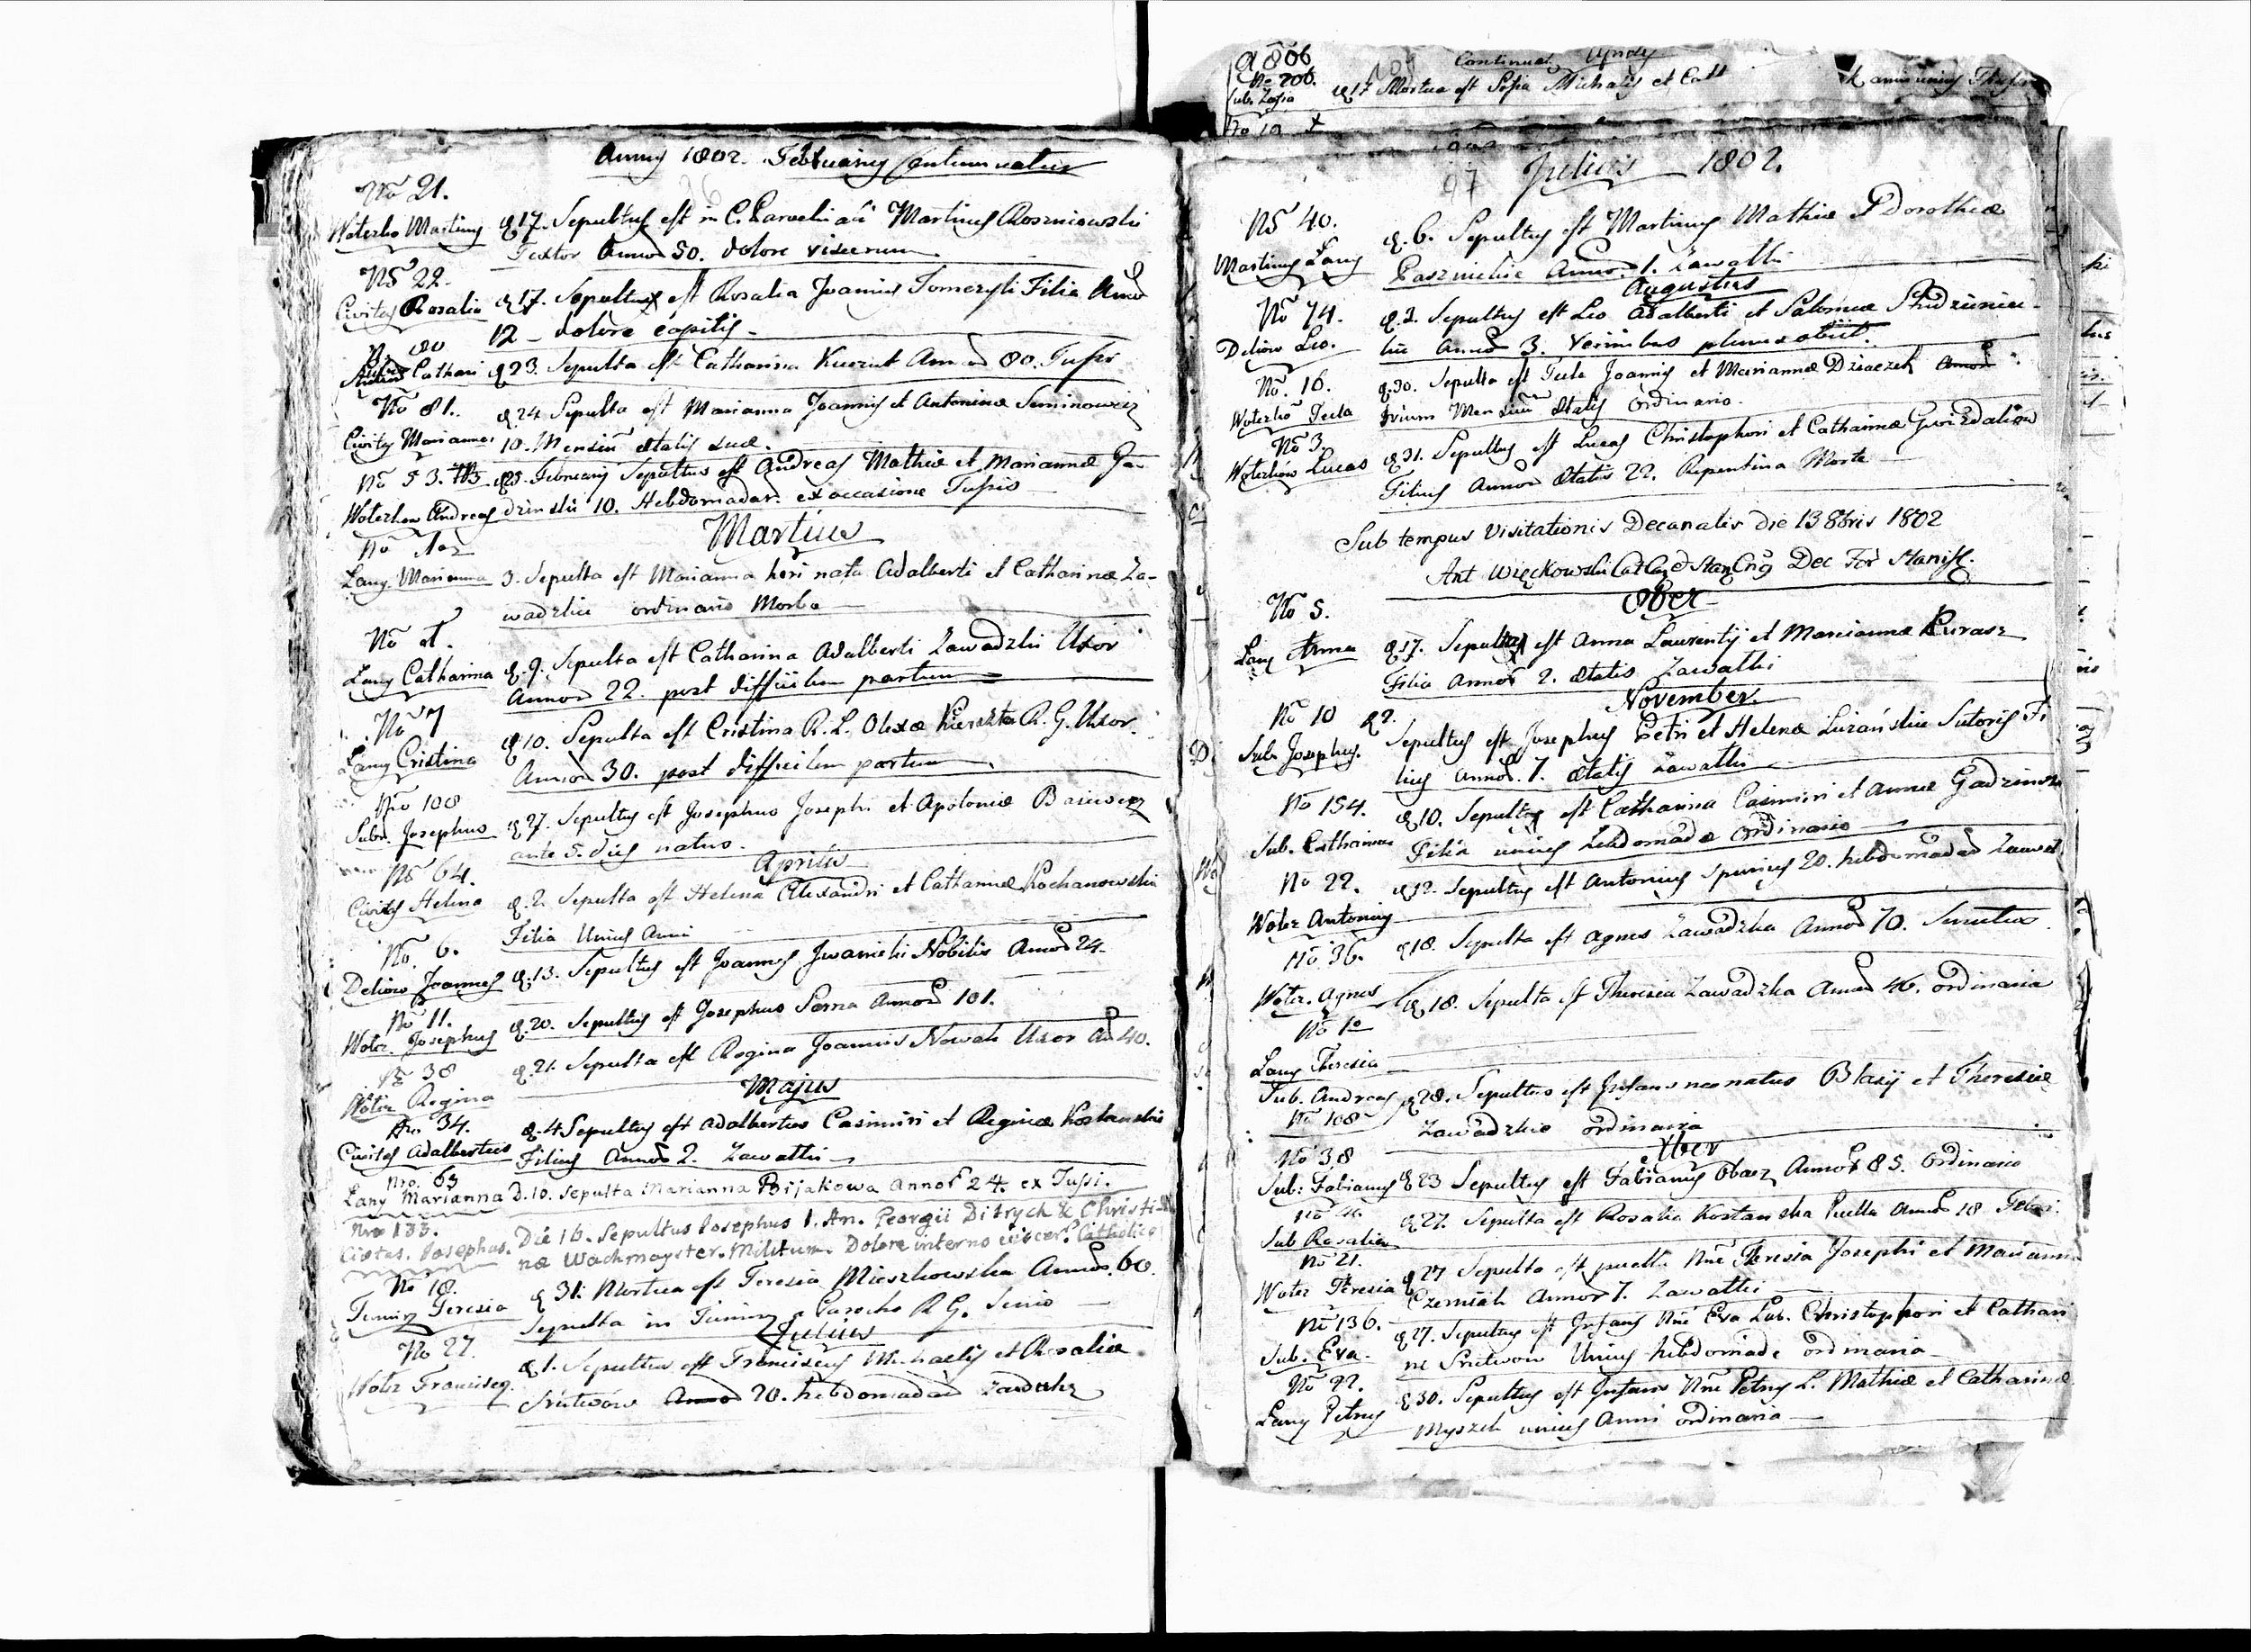 Annus 1802. Februarius Continuatur
No 21.
Woterko Martinus d 17. Sepultus est in C. Martinus Roszniowski
Textor Annor 50. dolore viscerum
No 22.
Civitas Rosalia d 17. Sepultus est Rosalia Joannis Filia Annor
12 dolore capitis
No 80
Cathari d 23. Sepulta est Catharina Annor 80. Tussi
No 81.
Civitas Marianna d 24 Sepulta est Marianna Joannis et Antoninæ
10. Mensiu ætatis suæ.
No 53. d 25. Februarij Sepultus est Andreas Mathiæ et Mariannæ Ga-
Woterkow Andreas dzinskii 10. Hebdomadar. ex occasione Tussis
Martius
No
Lany Marianna 3. Sepulta est Marianna heri nata Adalberti et Catharinæ Za-
wadzkie ordinario Morbo
No
Lany Catharina d. 9. Sepulta est Catharina Adalberti Zawadzki Uxor
Annor 22. post difficilem partum
No 7
Lany Cristina d 10. Sepulta est Cristina R. L. Olexæ R. G. Uxor.
Annor 30. post difficilem partum
No 108
Sub. Josephus d 27. Sepultus est Josephus Josephi et Apoloniæ
ante 5. dies natus.
Aprilis
No 64.
Civitas Helena d. 2. Sepulta est Helena Alexandri et Catharinæ Kochanowskie
Filia Unius Anni
No. 6.
Deliow Joannes d. 13. Sepultus est Joannes Iwanicki Nobilis Annor 24.
No 11.
Woter. Josephus d. 20. Sepultus est Josephus Sarna Annor 101.
No 38
Woter Regina d. 21. Sepulta est Regina Joannis Nowak Uxor An 40.
Majus
No 34.
Civitas Adalbertus d. 4 Sepultus est Adalbertus Casimiri et Reginæ
Filius Annor 2. Zawatki
Nro. 63
Lany Marianna D. 10. Sepulta Marianna Bijakowa Annor 24. ex Tussi.
Nro 133.
Civitas. Josephus. Die 16. Sepultus Josephus 1. An. Georgii Ditrych & Christi-
næ Wachmayster. Militum. Dolore interno viscer. Catholicus
No 18.
Tumirz Teresia d 31. Mortua est Teresia Mieszkowska Annor 60.
Sepulta in Tumirz a Parocho R G. Senio
Julius
No 27.
Woter Franciscus. d 1. Sepultus est Franciscus Michaelis et Rosaliæ
Snitwow 20. hebdomadar
A 806
No 206.
Continuat
Sub. Zofia d 17 Mortua est Sofia Michalis et Cath
No 19
97 Julius 1802.
No 40.
Martinus Lany d. 6. Sepultus est Martinus Mathiæ et Dorotheæ
Annor 1. Zawatki
Augustus
No 74.
Deliow Leo. d. 2. Sepultus est Leo Adalberti et Salomeæ Studzinie-
kie Annor 3. Vermibus plenus obiit.
No. 16.
Woterko Tecla d. 30. Sepulta est Tecla Joannis et Mariannæ Dziaczek
trium Mensiu ætatis Ordinario.
No 3.
Woterkow Lucas d 31. Sepultus est Lucas Christophori et Catharinæ
Filius Annor ætatis 22. Repentina Morte
Sub tempus Visitationis Decanalis die 13 8bris 1802
Ant Więckowski Dec For Stanisl.
8ber
No 5.
Lany Anna d 17. Sepulta est Anna Laurentij et Mariannæ Kurasz
Filia Annor 2. ætatis Zawatki
November.
No 10
Sub Josephus. d 2. Sepultus est Josephus Petri et Helenæ Sutoris Fi
lius Annor. 7. ætatis Zawatki
No 154.
Sub. Catharina d 10. Sepulta est Catharina Casimiri et Annæ
Filia unius hebdomadæ Ordinario
No 22.
Woter Antonius d 12. Sepultus est Antonius spurius 20. hebdomadar
No 36.
Woter. Agnes d 18. Sepulta est Agnes Zawadzka Annor 70.
No 10
Lany Theresia d 18. Sepulta est Theresia Zawadzka Annor 46. ordinaria
Sub. Andreas d 28. Sepultus est Infans neonatus Blasij et Theresiæ
No 108
Zawadzkie ordinaria
Xber
No 38
Sub: Fabianus d 23 Sepultus est Fabianus Obacz Annor 85. Ordinario
Sub Rosalia d 27. Sepulta est Rosalia Kostanska Puella Annor 18
No 21.
Woter Teresia d 27 Sepulta est puella Nne Theresia Josephi et Marianna
Czemiak Annor 7. Zawatki
No 136.
Sub. Eva. d 27. Sepultus est Infans Nne Eva Lab. Christophori et Cathari
næ Snitwow Unius hebdomade ordinaria
No 22.
Lany Petrus d 30. Sepultus est Infans Nne Petrus L. Mathiæ et Catharinæ
Myszek unius Anni ordinaria